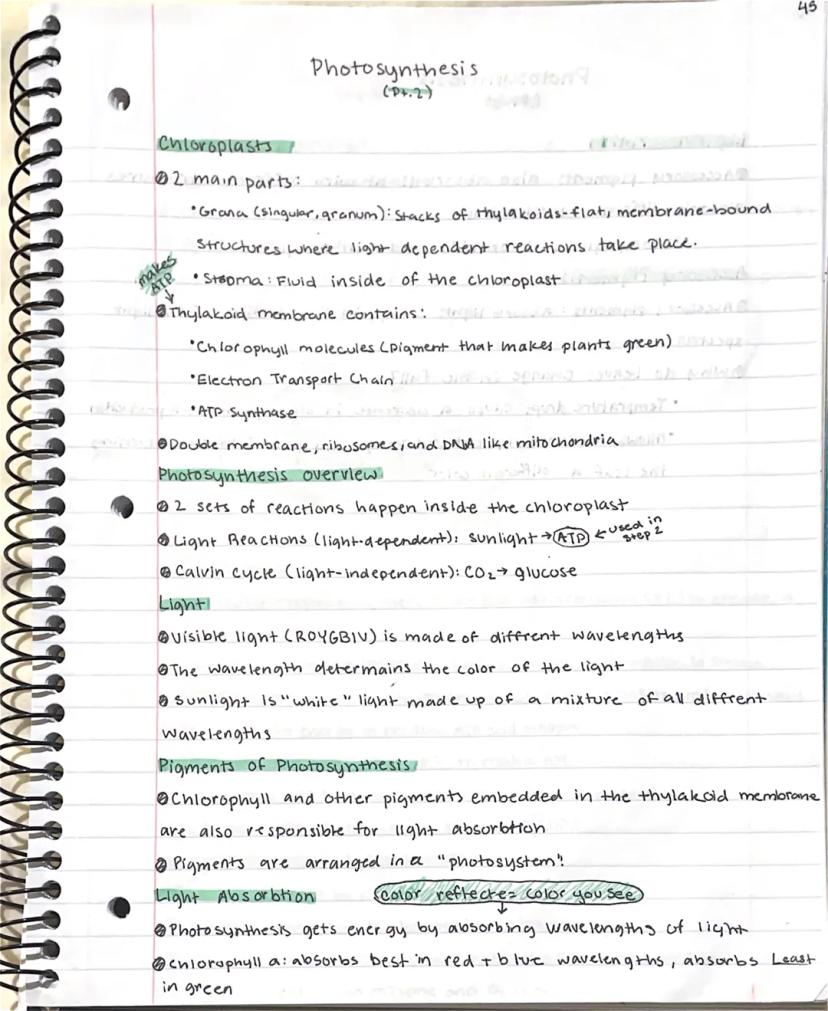 45
Photosynthesis
(Pt.2)
Chloroplasts
2 main parts:
•Grana (singular, granum): Stacks of thylakoids-flat, membrane-bound
structures where light dependent reactions take place.
makes
ATP
•Stroma: Fluid inside of the chloroplast
Thylakoid membrane contains:
•Chlorophyll molecules (pigment that makes plants green)
•Electron Transport Chain
•ATP Synthase
Double membrane, ribosomes, and DNA like mitochondria
Photosynthesis overview
2 sets of reactions happen inside the chloroplast
Light Reactions (light-dependent): sunlight → ATP ← used in
step 2
Calvin Cycle (light-independent): CO₂ → glucose
Light
Visible light (ROYGBIV) is made of diffrent wavelengths
The wavelength determains the color of the light
Sunlight is "white" light made up of a mixture of all diffrent
wavelengths
Pigments of Photosynthesis
Chlorophyll and other pigments embedded in the thylakoid membrane
are also responsible for light absorbtion
Pigments are arranged in a "photosystem".
Light Absorbtion color reflecte = color you see
Photosynthesis gets energy by absorbing wavelengths of light
Chlorophyll a: absorbs best in red + blue wavelengths, absorbs Least
in green